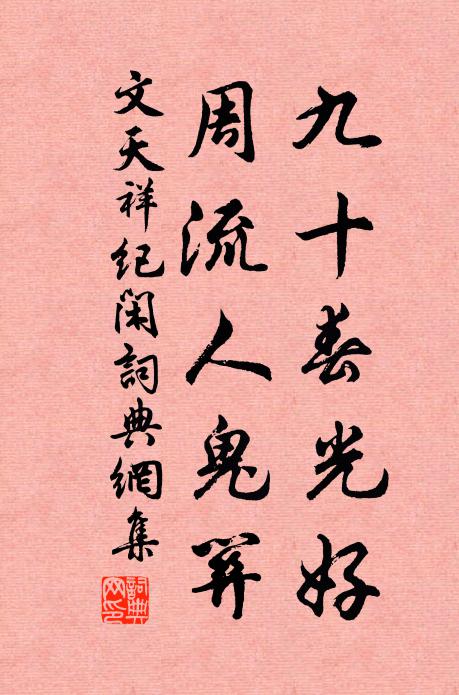 九十春光好
周流人鬼關
文天祥紀閑詞典網集
詞典
网印